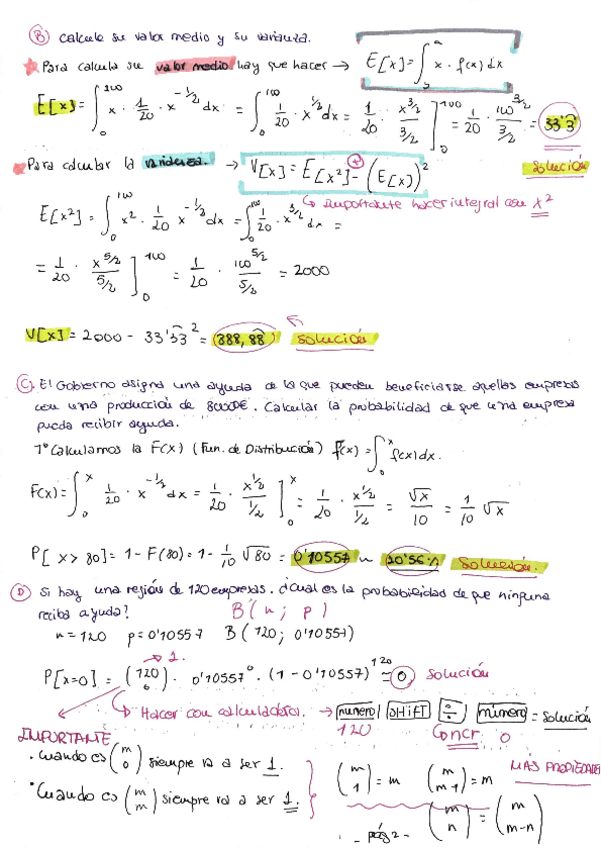 B) Calcule su valor medio y su varianza.
* Para calcula su valor medio hay que hacer → E[x] = ∫ x · f(x) dx
E[x] = ∫₀¹⁰⁰ x · 1/20 · x^(-1/2) dx = ∫₀¹⁰⁰ 1/20 · x^(1/2) dx = 1/20 · x^(3/2)/(3/2) ]₀¹⁰⁰ = 1/20 · 100^(3/2)/(3/2) = 33'3
solución
* Para calcular la → V[x] = E[x²] - (E[x])²
↳ Importante hacer integral con x²
E[x²] = ∫₀¹⁰⁰ x² · 1/20 x^(-1/2) dx = ∫₀¹⁰⁰ 1/20 · x^(3/2) dx =
= 1/20 · x^(5/2)/(5/2) ]₀¹⁰⁰ = 1/20 · 100^(5/2)/(5/2) = 2000
V[x] = 2000 - 33'33² = 888,88 solución
C) El Gobierno asigna una ayuda de la que pueden beneficiarse aquellas empresas
con una producción de 80000€. Calcular la probabilidad de que una empresa
pueda recibir ayuda.
1º Calculamos la F(x) (Fun. de Distribución) F(x) = ∫₀ˣ f(x) dx.
F(x) = ∫₀ˣ 1/20 · x^(-1/2) dx = 1/20 · x^(1/2)/(1/2) ]₀ˣ = 1/20 · x^(1/2)/(1/2) = √x/10 = 1/10 √x
P[x > 80] = 1 - F(80) = 1 - 1/10 √80 = 0'10557 ~ 10'56% Solución.
D) Si hay una región de 120 empresas. ¿Cual es la probabilidad de que ninguna
reciba ayuda? B(n; p)
n = 120 p = 0'10557 B(120; 0'10557)
→ 1.
P[x=0] = (120 0) · 0'10557⁰ · (1 - 0'10557)¹²⁰ = 0, solución
↳ Hacer con calculadora. → número / SHIFT ÷ número = solución
120 0
IMPORTANTE
· Cuando es (m 0) siempre va a ser 1.
· Cuando es (m m) siempre va a ser 1.
MÁS PROPIEDADES
(m 1) = m (m m-1) = m
(m n) = (m m-n)
- pág 2 -